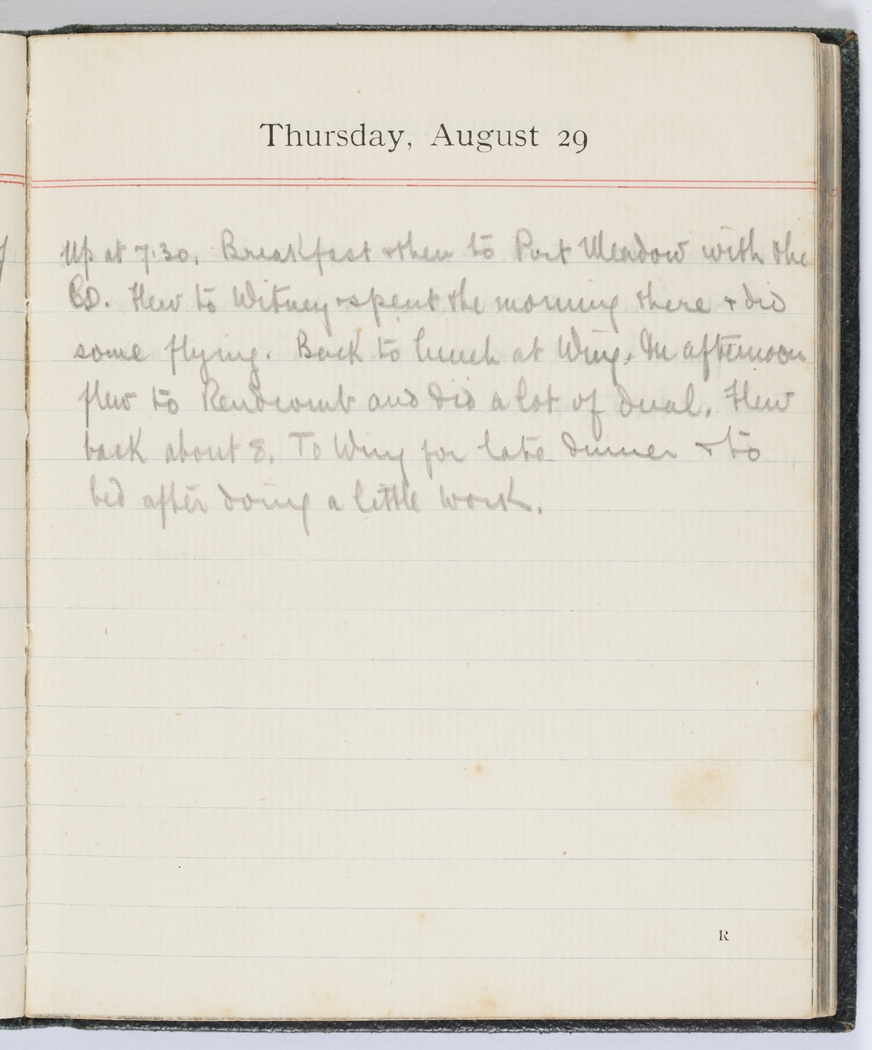 Thursday, August 29
Up at 7.30. Breakfast & then to Port Meadow with the
CO. Flew to Witney & spent the morning there & did
some flying. Back to lunch at Wing. In afternoon
flew to Rendcomb and did a lot of dual. Flew
back about 8. To Wing for late dinner & to
bed after doing a little work.
R